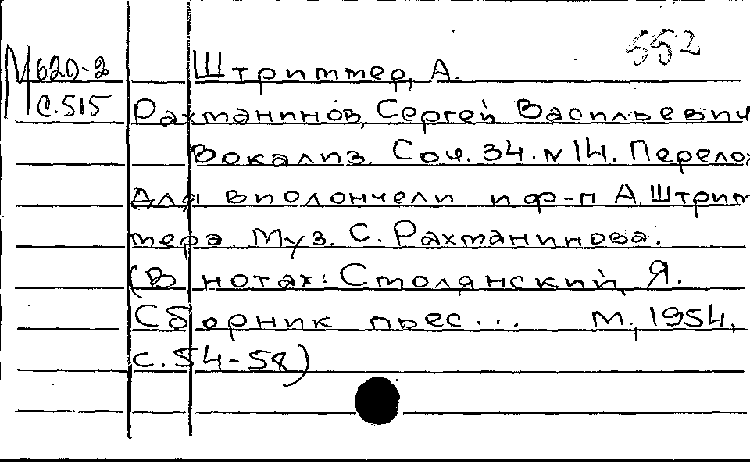 552
М620-2 Штриммер, А.
с.515 Рахманинов, Сергей Васильевич
Вокализ. Соч. 34. N 14. Перело
для виолончели и ф-п А. Штрим
мера Муз. С. Рахманинова.
(В нотах: Столянский, Я.
Сборник пьес... М., 1954,
с. 54-58)